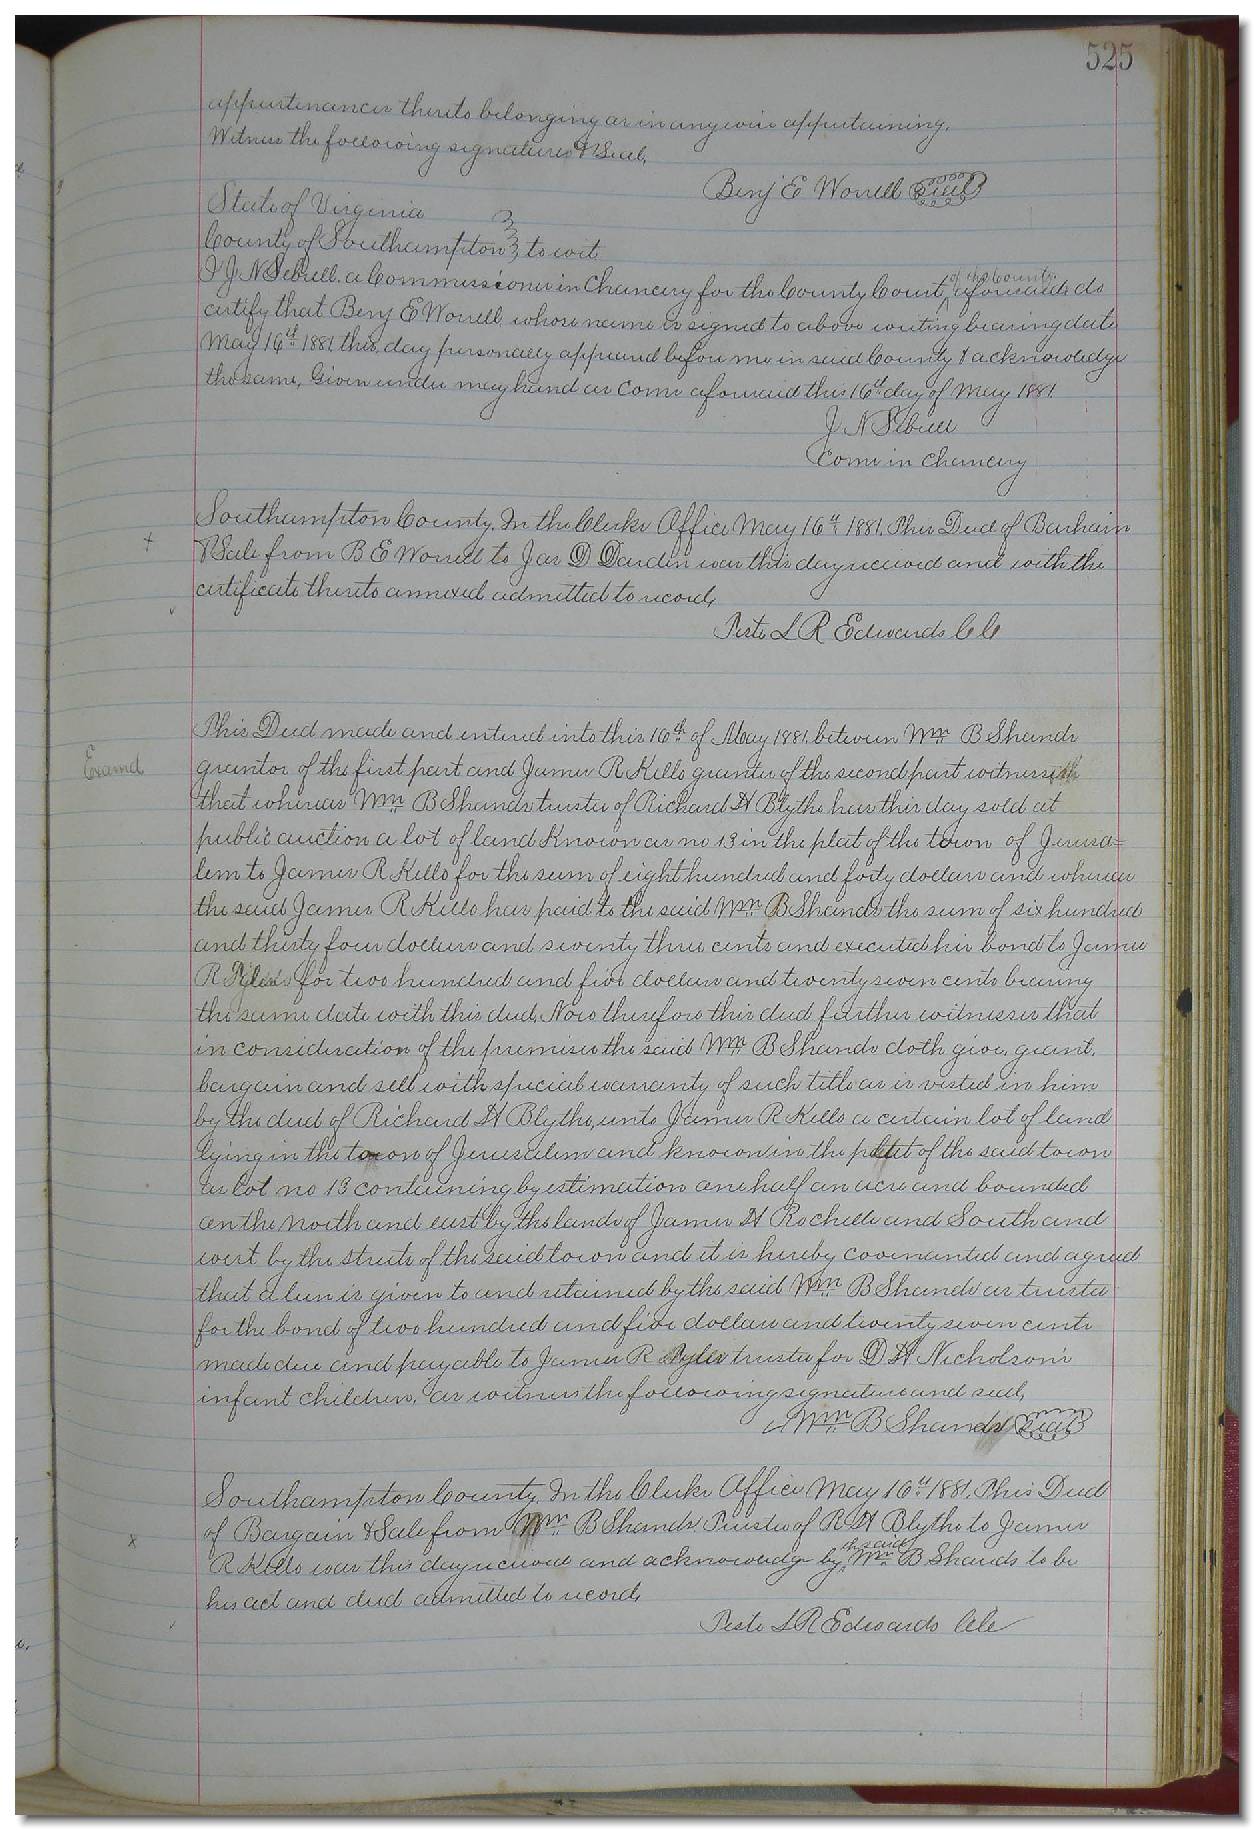 525
appurtenances thereto belonging or in any wise appertaining.
Witness the following signatures & Seal,
Benj E Worrell Seal
State of Virginia
County of Southampton to wit
I J. N Sebrell a Commissioner in Chancery for the County Court, of the County aforesaid do
certify that Benj E Worrell whose name is signed to above writing bearing date
May 16th 1881 this day personally appeared before me in said County & acknowledge
the same, Given under my hand as Comr aforesaid this 16th day of May 1881
J N Sebrell
Comr in Chancery
Southampton County. In the Clerks Office May 16th 1881. This Deed of Barhain
& Sale from B E Worrell to Jas D Darden was this day received and with the
certificate thereto annexed admitted to record,
Teste L R Edwards CC
Examd
This Deed made and entered into this 16th of May 1881. between Wm B Shands
grantor of the first part and James R Kello grantee of the second part witnesseth
that whereas Wm B Shands trustee of Richard H Blythe has this day sold at
public auction a lot of land known as no 13 in the plat of the town of Jerusa=
lem to James R Kello for the sum of eight hundred and forty dollars and whereas
the said James R Kello has paid to the said Wm B Shands the sum of six hundred
and thirty four dollars and seventy three cents and executed his bond to James
R for two hundred and five dollars and twenty seven cents bearing
the same date with this deed, Now therefore this deed further witnesses that
in consideration of the premises the said Wm B Shands doth give, grant,
bargain and sell with special warranty of such title as is vested in him
by the deed of Richard H Blythe, unto James R Kello a certain lot of land
lying in the town of Jerusalem and known in the plat of the said town
as lot no 13 containing by estimation one half an acre and bounded
on the North and east by the lands of James H Rochelle and South and
west by the streets of the said town and it is hereby covenanted and agreed
that a lien is given to and retained by the said Wm B Shands as trustee
for the bond of two hundred and five dollars and twenty seven cents
made due and payable to James R Pyles trustee for D H Nicholson's
infant children, as witness the following signature and seal,
Wm B Shands Seal
Southampton County. In the Clerks Office May 16th 1881. This Deed
of Bargain & Sale from Wm B Shands Trustee of R H Blythe to James
R Kello was this day received and acknowledge by the said Wm B Shands to be
his act and deed admitted to record,
Teste L R Edwards Clk